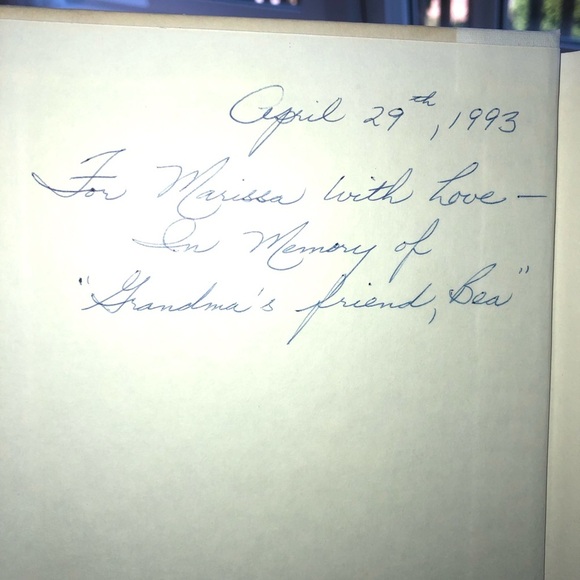 April 29th, 1993
For Marissa with Love —
In Memory of
"Grandma's friend, Bea"